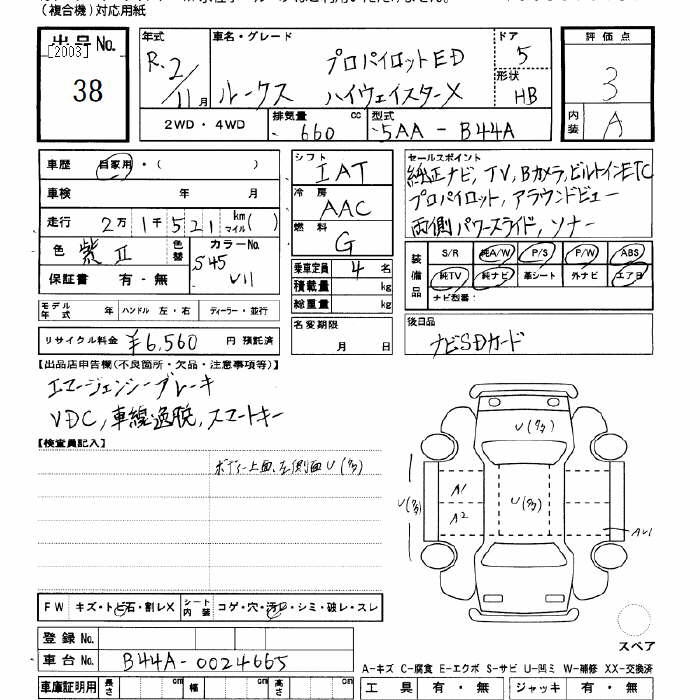 (複合機)対応用紙
出品No.
[2003]
38
年式 R.2/11月
車名・グレード プロパイロットED
ルークス ハイウェイスターX
ドア 5
形状 HB
評価点 3
内装 A
2WD・4WD
排気量 660 cc
型式 5AA - B44A
車歴 自家用・( )
車検 年 月
走行 2万1千521 km マイル( )
色 紫II
色替
カラーNo. S45 V11
保証書 有・無
シフト IAT
冷房 AAC
燃料 G
乗車定員 4名
積載量 kg
総重量 kg
セールスポイント
純正ナビ,TV,Bカメラ,ビルトインETC
プロパイロット,アラウンドビュー
両側パワースライド,ソナー
装備品 S/R 純A/W P/S P/W ABS
純TV 純ナビ 革シート 外ナビ エアB
ナビ型番:
モデル年式 年 ハンドル 左・右 ディーラー・並行
リサイクル料金 ¥6,560 円 預託済
名変期限 月 日
後日品
ナビSDカード
【出品店申告欄(不良箇所・欠品・注意事項等)】
エマージェンシーブレーキ
VDC,車線逸脱,スマートキー
【検査員記入】
ボディー上面,左側面U(多)
U(多)
A1
A2
U(多)
U(多)
AU1
FW キズ・トビ石・割レX シート内装 コゲ・穴・汚レ・シミ・破レ・スレ
登録No.
車台No. B44A-0024665
スペア
A-キズ C-腐食 E-エクボ S-サビ U-凹ミ W-補修 XX-交換済
車庫証明用 長さ cm 幅 cm 高さ cm
工具 有・無 ジャッキ 有・無